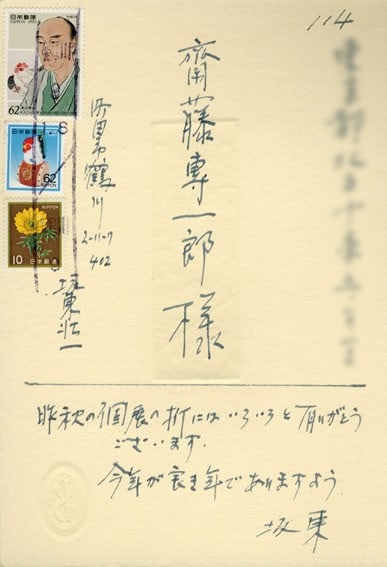 114
齋藤專一郎様
町田市鶴川
2-11-7
402
坂東壮一
日本郵便
NIPPON
62
日本郵便
62
NIPPON
NIPPON
10
日本郵便
昨秋の個展の折にはいろいろと有りがとう
ございます.
今年が良き年でありますよう.
坂東